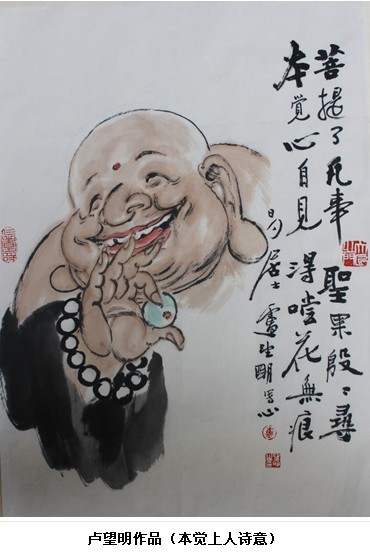 菩提了凡事 聖果殷〻尋
本觉心自見 得花無痕
易居士 盧望明写心
卢望明作品（本觉上人诗意）